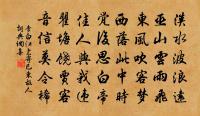 漢水波浪遠
巫山雲雨飛
東風吹客夢
西落此中時
覺後思白帝
佳人與我違
瞿塘饒賈客
音信莫令稀
李白江上寄巴東故人
詞典網集